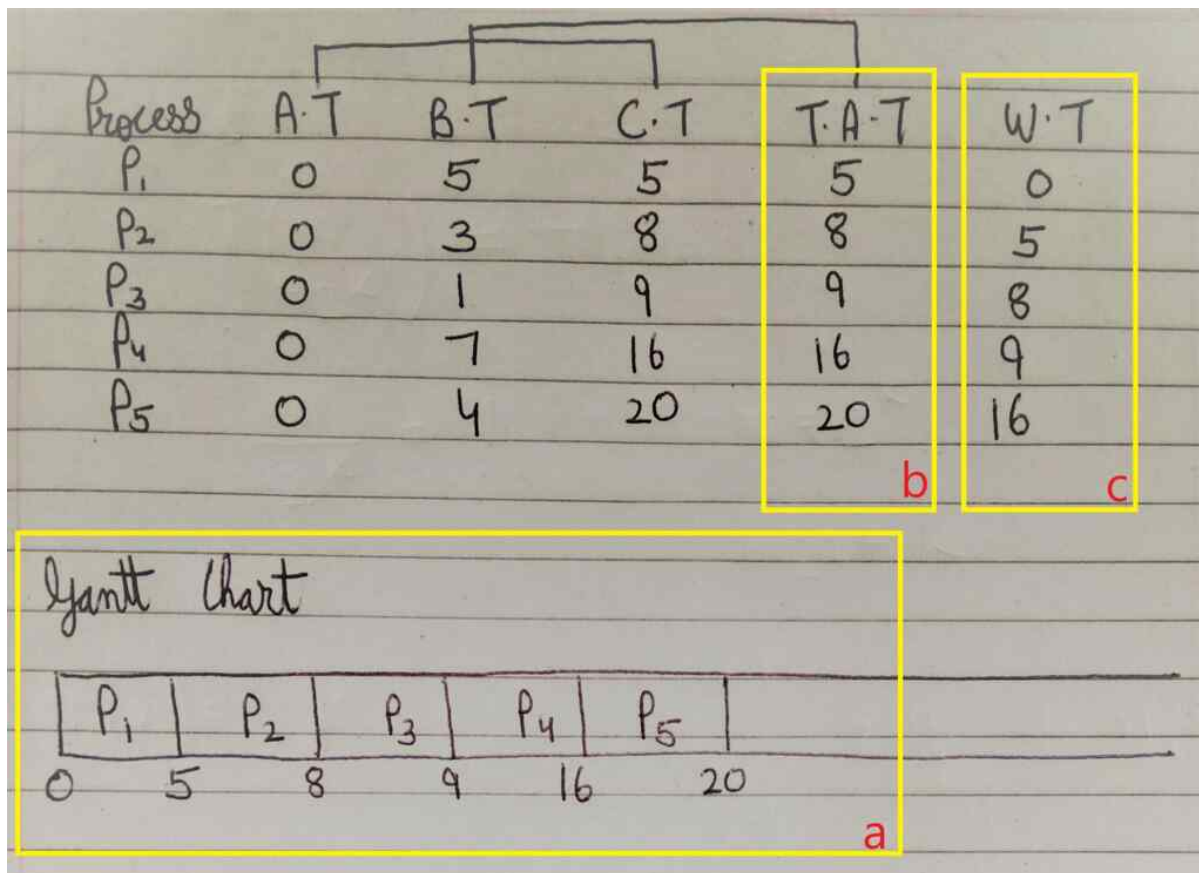 Process A.T B.T C.T T.A.T W.T
P1 0 5 5 5 0
P2 0 3 8 8 5
P3 0 1 9 9 8
P4 0 7 16 16 9
P5 0 4 20 20 16
b c
Gantt Chart
P1 P2 P3 P4 P5
0 5 8 9 16 20
a